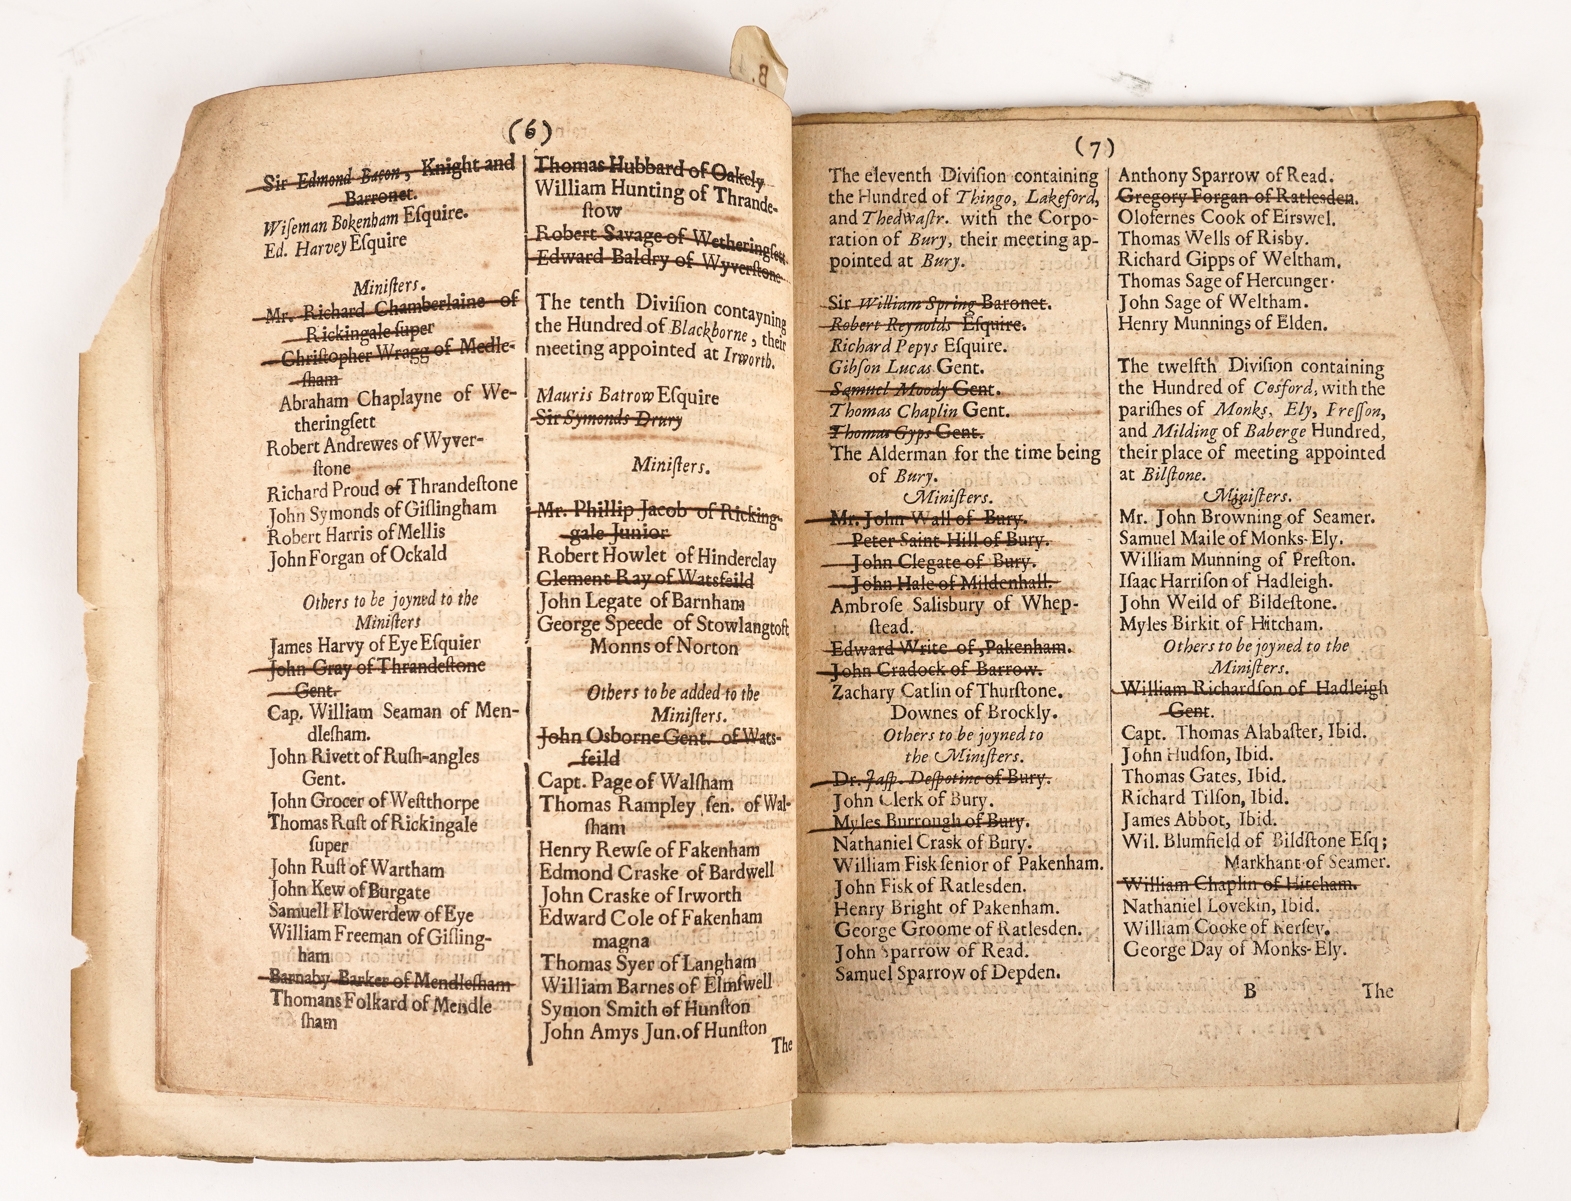 (6)
Sir Edmond Bacon, Knight and
Barronet.
Wiſeman Bokenham Eſquire.
Ed. Harvey Eſquire
Miniſters.
Mr. Richard Chamberlaine of
Rickingale ſuper
Chriſtopher Wragg of Medle-
ſham
Abraham Chaplayne of We-
theringſett
Robert Andrewes of Wyver-
ſtone
Richard Proud of Thrandeſtone
John Symonds of Giſlingham
Robert Harris of Mellis
John Forgan of Ockald
Others to be joyned to the
Miniſters
James Harvy of Eye Eſquier
John Gray of Thrandeſtone
Gent.
Cap. William Seaman of Men-
dleſham.
John Rivett of Ruſh-angles
Gent.
John Grocer of Weſtthorpe
Thomas Ruſt of Rickingale
ſuper
John Ruſt of Wartham
John Kew of Burgate
Samuell Flowerdew of Eye
William Freeman of Giſling-
ham
Barnaby Barker of Mendleſham
Thomans Folkard of Mendle
ſham
Thomas Hubbard of Oakely
William Hunting of Thrande-
ſtow
Robert Savage of Wetheringſett
Edward Baldry of Wyverſtone
The tenth Diviſion contayning
the Hundred of Blackborne, their
meeting appointed at Irworth.
Mauris Batrow Eſquire
Sir Symonds Drury
Miniſters.
Mr. Phillip Jacob of Ricking-
gale Junior
Robert Howlet of Hinderclay
Clement Ray of Watsfeild
John Legate of Barnham
George Speede of Stowlangtoft
Monns of Norton
Others to be added to the
Miniſters.
John Osborne Gent. of Wats-
feild
Capt. Page of Walſham
Thomas Rampley ſen. of Wal-
ſham
Henry Rewſe of Fakenham
Edmond Craske of Bardwell
John Craske of Irworth
Edward Cole of Fakenham
magna
Thomas Syer of Langham
William Barnes of Elmſwell
Symon Smith of Hunſton
John Amys Jun. of Hunſton
The
(7)
The eleventh Diviſion containing
the Hundred of Thingo, Lakeford,
and Thedwaſtr. with the Corpo-
ration of Bury, their meeting ap-
pointed at Bury.
Sir William Spring Baronet.
Robert Reynolds Eſquire.
Richard Pepys Eſquire.
Gibſon Lucas Gent.
Samuel Moody Gent.
Thomas Chaplin Gent.
Thomas Gyps Gent.
The Alderman for the time being
of Bury.
Miniſters.
Mr. John Wall of Bury.
Peter Saint-Hill of Bury.
John Clegate of Bury.
John Hale of Mildenhall.
Ambroſe Salisbury of Whep-
ſtead.
Edward Write of, Pakenham.
John Cradock of Barrow.
Zachary Catlin of Thurſtone.
Downes of Brockly.
Others to be joyned to
the Miniſters.
Dr. Jaſp. Deſpotine of Bury.
John Clerk of Bury.
Myles Burrough of Bury.
Nathaniel Crask of Bury.
William Fisk ſenior of Pakenham.
John Fisk of Ratlesden.
Henry Bright of Pakenham.
George Groome of Ratlesden.
John Sparrow of Read.
Samuel Sparrow of Depden.
Anthony Sparrow of Read.
Gregory Forgan of Ratlesden.
Olofernes Cook of Eirswel.
Thomas Wells of Risby.
Richard Gipps of Weltham.
Thomas Sage of Hercunger.
John Sage of Weltham.
Henry Munnings of Elden.
The twelfth Diviſion containing
the Hundred of Cosford, with the
pariſhes of Monks, Ely, Preſſon,
and Milding of Baberge Hundred,
their place of meeting appointed
at Bilſtone.
Miniſters.
Mr. John Browning of Seamer.
Samuel Maile of Monks-Ely.
William Munning of Preſton.
Iſaac Harriſon of Hadleigh.
John Weild of Bildeſtone.
Myles Birkit of Hitcham.
Others to be joyned to the
Miniſters.
William Richardſon of Hadleigh
Gent.
Capt. Thomas Alabaſter, Ibid.
John Hudſon, Ibid.
Thomas Gates, Ibid.
Richard Tilſon, Ibid.
James Abbot, Ibid.
Wil. Blumfield of Bildſtone Eſq;
Markhant of Seamer.
William Chaplin of Hitcham.
Nathaniel Lovekin, Ibid.
William Cooke of Kerſey.
George Day of Monks-Ely.
B The